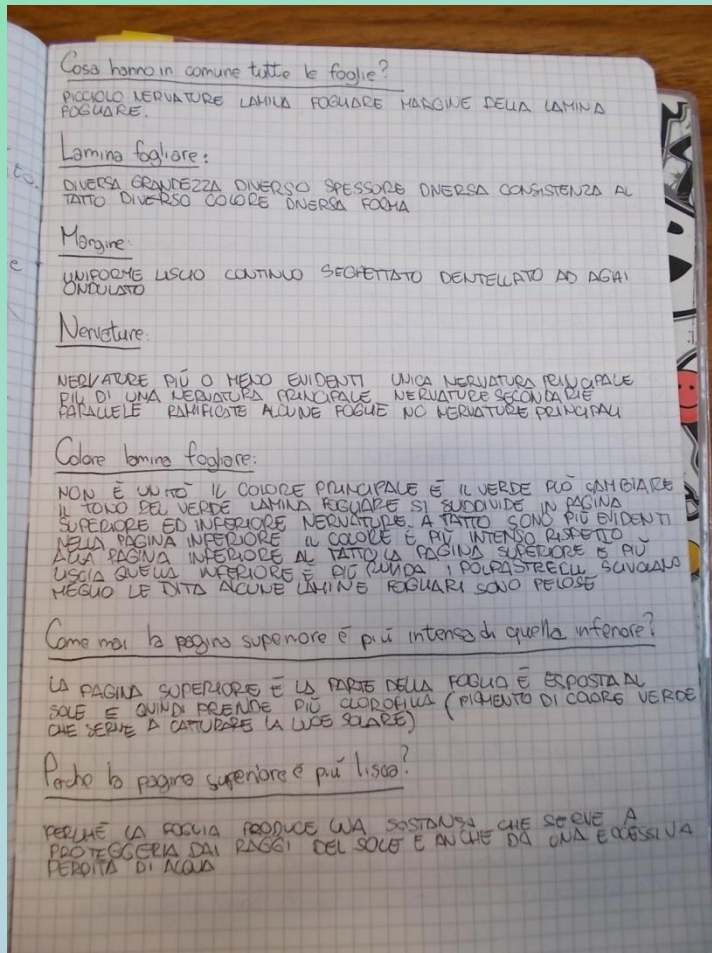 Cosa hanno in comune tutte le foglie?
PICCIOLO NERVATURE LAMINA FOGLIARE MARGINE DELLA LAMINA
FOGLIARE.
Lamina fogliare:
DIVERSA GRANDEZZA DIVERSO SPESSORE DIVERSA CONSISTENZA AL
TATTO DIVERSO COLORE DIVERSA FORMA
Margine:
UNIFORME LISCIO CONTINUO SEGHETTATO DENTELLATO AD AGHI
ONDULATO
Nervature:
NERVATURE PIÚ O MENO EVIDENTI UNICA NERVATURA PRINCIPALE
PIÚ DI UNA NERVATURA PRINCIPALE NERVATURE SECONDARIE
PARALLELE RAMIFICATE ALCUNE FOGLIE NO NERVATURE PRINCIPALI
Colore lamina fogliare:
NON É UNITO IL COLORE PRINCIPALE É IL VERDE PUÓ CAMBIARE
IL TONO DEL VERDE LAMINA FOGLIARE SI SUDDIVIDE IN PAGINA
SUPERIORE ED INFERIORE NERVATURE. A TATTO SONO PIÚ EVIDENTI
NELLA PAGINA INFERIORE IL COLORE É PIÚ INTENSO RISPETTO
ALLA PAGINA INFERIORE AL TATTO LA PAGINA SUPERIORE É PIÚ
LISCIA QUELLA INFERIORE É PIÚ RUVIDA I POLPASTRELLI SCIVOLANO
MEGLIO LE DITA ALCUNE LAMINE FOGLIARI SONO PELOSE
Come mai la pagina superiore é piú intensa di quella inferiore?
LA PAGINA SUPERIORE É LA PARTE DELLA FOGLIA É ESPOSTA AL
SOLE E QUINDI PRENDE PIÚ CLOROFILLA (PIGMENTO DI COLORE VERDE
CHE SERVE A CATTURARE LA LUCE SOLARE)
Perche la pagina superiore é piú liscia?
PERCHÉ LA FOGLIA PRODUCE UNA SOSTANSA CHE SERVE A
PROTEGGERLA DAI RAGGI DEL SOLE E ANCHE DA UNA ECCESSIVA
PERDITA DI ACQUA